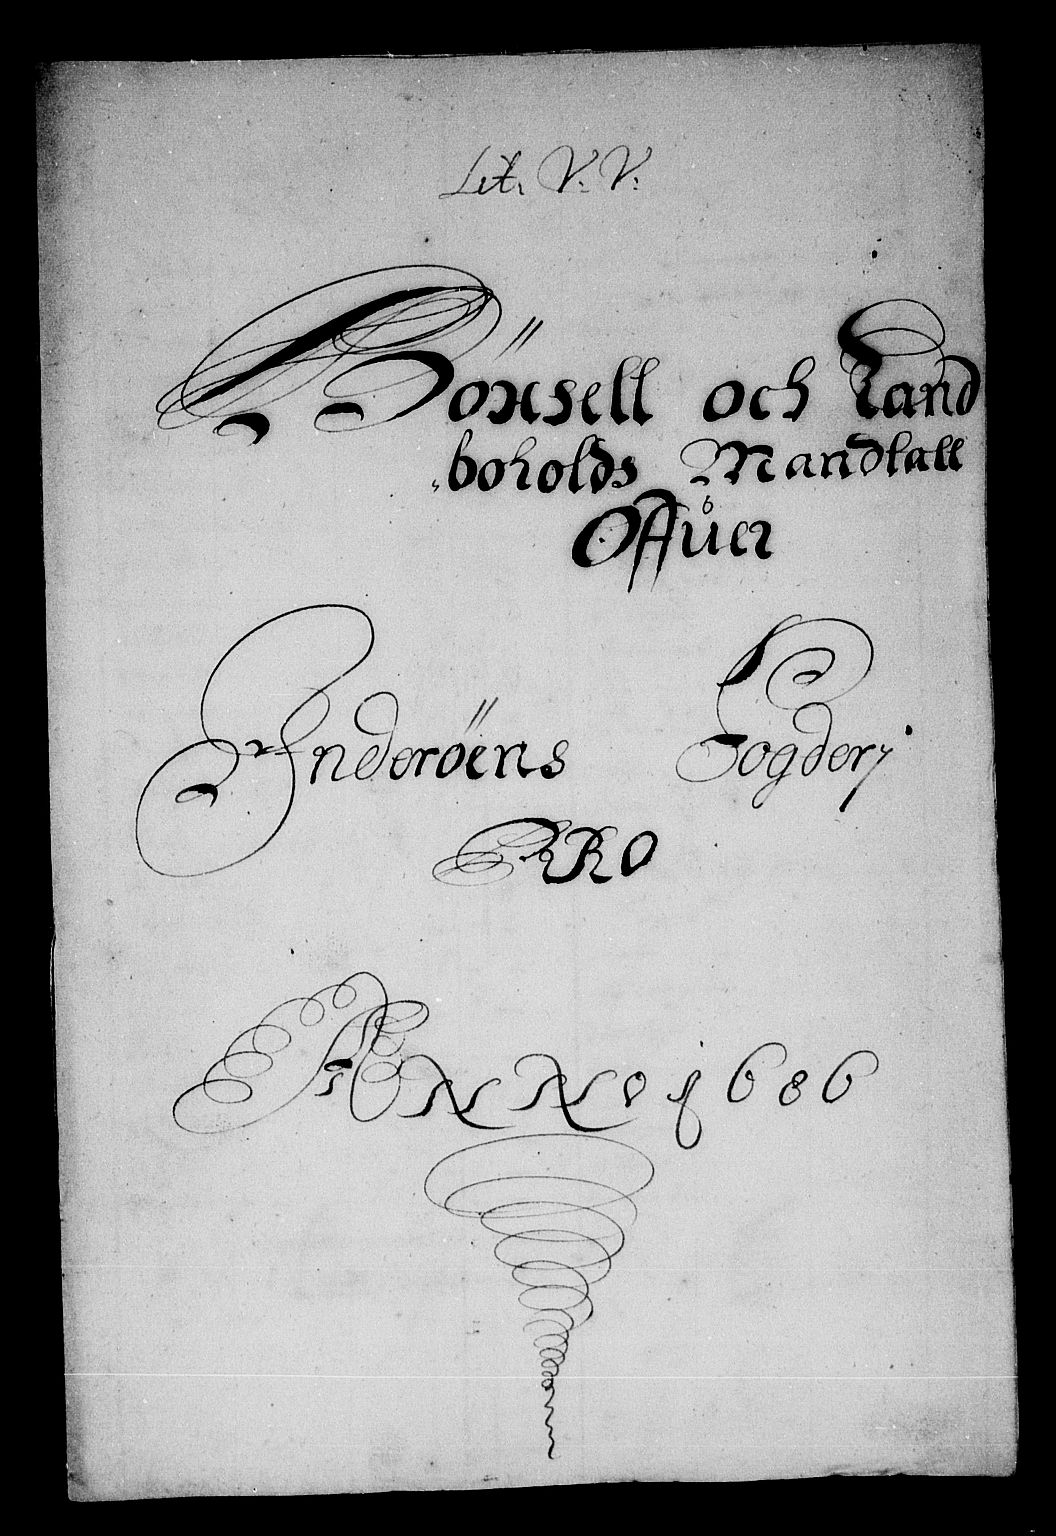 Lit. V. V.
Böxsell och Land
boholds Mandtall
Offuer
Inderøens Fogderj
PRO
ANNO 1686